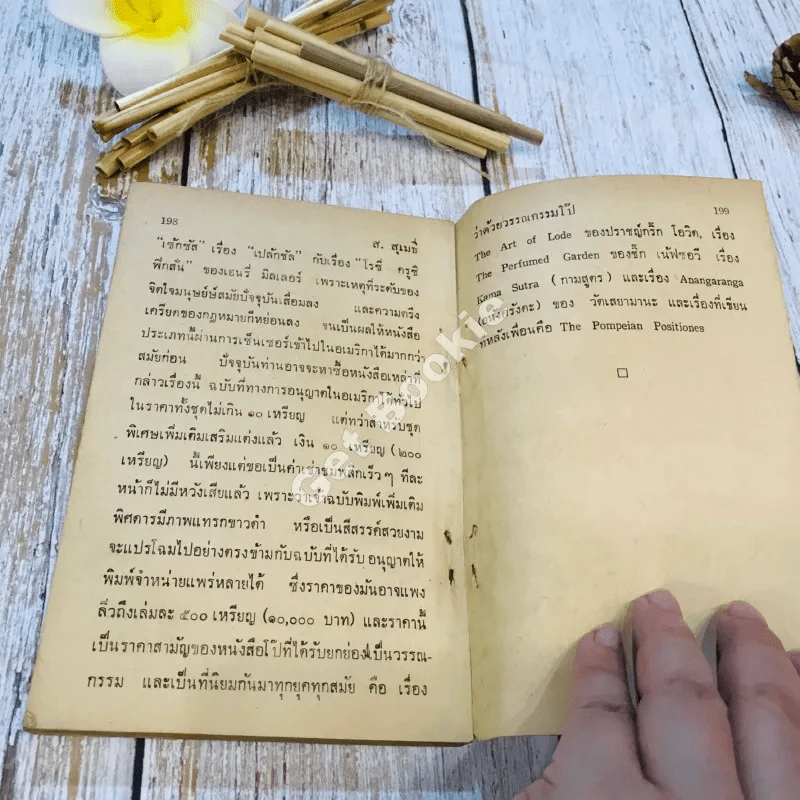 198
ส. สุเมธี
"เซ้กซัส" เรื่อง "เปล้กซัส" กับเรื่อง "โรซี่ ครูซิ
ฟิกสั่น" ของเฮนรี่ มิลเลอร์ เพราะเหตุที่ระดับของ
จิตใจมนุษย์ษ์สมัยปัจจุบันเสื่อมลง และความตึง
เครียดของกฎหมายก็หย่อนลง จนเป็นผลให้หนังสือ
ประเภทนี้ผ่านการเซ็นเซอร์เข้าไปในอเมริกาได้มากกว่า
สมัยก่อน ปัจจุบันท่านอาจจะหาซื้อหนังสือเหล่าที่
กล่าวเรื่องนี้ ฉบับที่ทางการอนุญาตในอเมริกาได้ทั่วไป
ในราคาทั้งชุดไม่เกิน ๑๐ เหรียญ แต่ทว่าสำหรับชุด
พิเศษเพิ่มเติมเสริมแต่งแล้ว เงิน ๑๐ เหรียญ (๒๐๐
เหรียญ) นี้เพียงแต่ขอเป็นค่าเช่าชมพลิกเร็วๆ ทีละ
หน้าก็ไม่มีหวังเสียแล้ว เพราะว่าเจ้าฉบับพิมพ์เพิ่มเติม
พิศดารมีภาพแทรกขาวดำ หรือเป็นสีสรรค์สวยงาม
จะแปรโฉมไปอย่างตรงข้ามกับฉบับที่ได้รับ อนุญาตให้
พิมพ์จำหน่ายแพร่หลายได้ ซึ่งราคาของมันอาจแพง
ลิ่วถึงเล่มละ ๕๐๐ เหรียญ (๑๐,๐๐๐ บาท) และราคานี้
เป็นราคาสามัญของหนังสือโป๊ที่ได้รับยกย่องเป็นวรรณ-
กรรม และเป็นที่นิยมกันมาทุกยุคทุกสมัย คือ เรื่อง
ว่าด้วยวรรณกรรมโป๊
199
The Art of Lode ของปราชญ์กรี๊ก โอวิด, เรื่อง
The Perfumed Garden ของชี๊ก เน้ฟซอวี เรื่อง
Kama Sutra (กามสูตร) และเรื่อง Anangaranga
(อนังครังคะ) ของ วัตเสยามานะ และเรื่องที่เขียน
ทีหลังเพื่อนคือ The Pompeian Positiones
Get Bookie